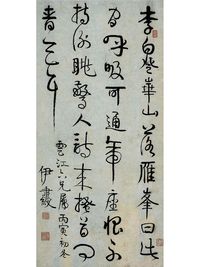 李白登華山落雁峯曰此
間呼吸可通帝座恨不
持謝朓驚人詩來搔首問
青天耳
雲江六兄屬 丙寅初冬
伊秉綬